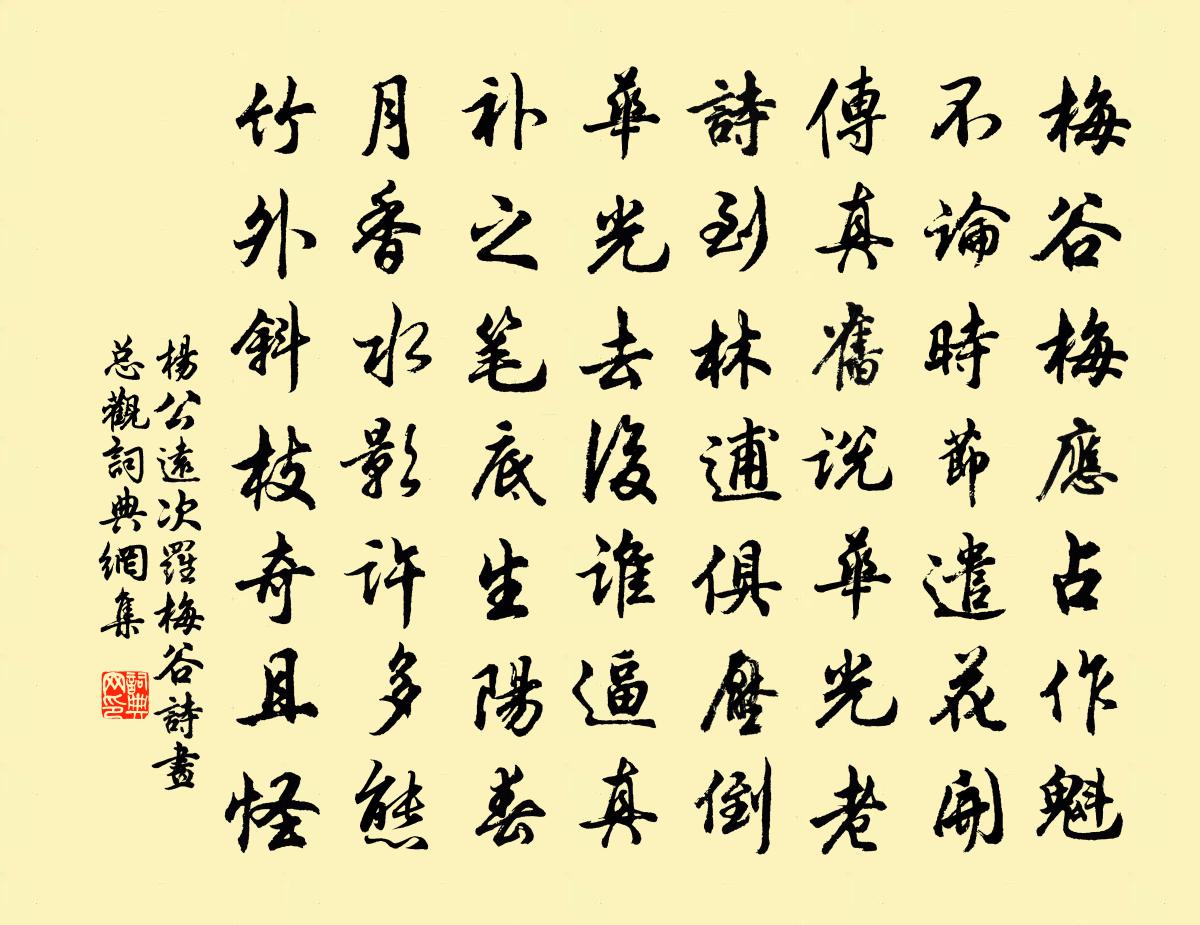 梅谷梅應占作魁
不論時節遣花開
傳真舊説華光老
詩到林逋俱壓倒
華光去後誰逼真
补之笔底生陽春
月香水影許多態
竹外斜枝奇且怪
楊公遠次羅梅谷詩畫
总觀詞典網集
詞典网印